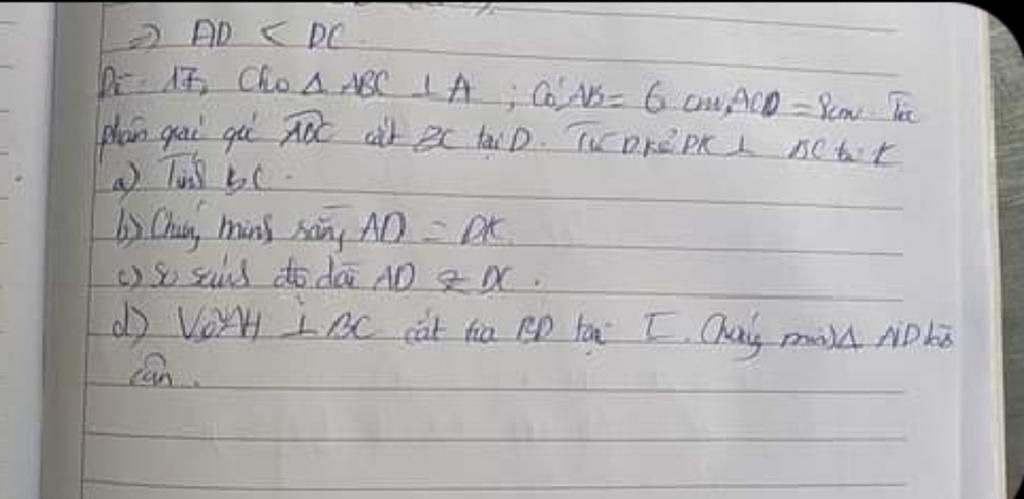 => AD < DC
17, Cho Δ ABC ⊥ A ; Có AB = 6 cm, ACD = 8cm. Tia
phân giác góc ABC cắt BC tại D. Từ D kẻ DK ⊥ BC tại K
a) Tính BC.
b) Chứng minh rằng AD = DK
c) So sánh độ dài AD và DC.
d) Vẽ AH ⊥ BC cắt tia BD tại I. Chứng minh Δ AID
cân.